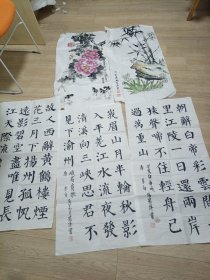 朝辭白帝彩雲間千
里江陵一日還兩岸
猿聲啼不住輕舟已
過萬重山
峨眉山月半輪秋影
入平羌江水流夜發
清溪向三峡思君不
見下渝州
故人西辭黄鶴樓煙
花三月下揚州孤帆
遠影碧空盡唯見長
江天際流